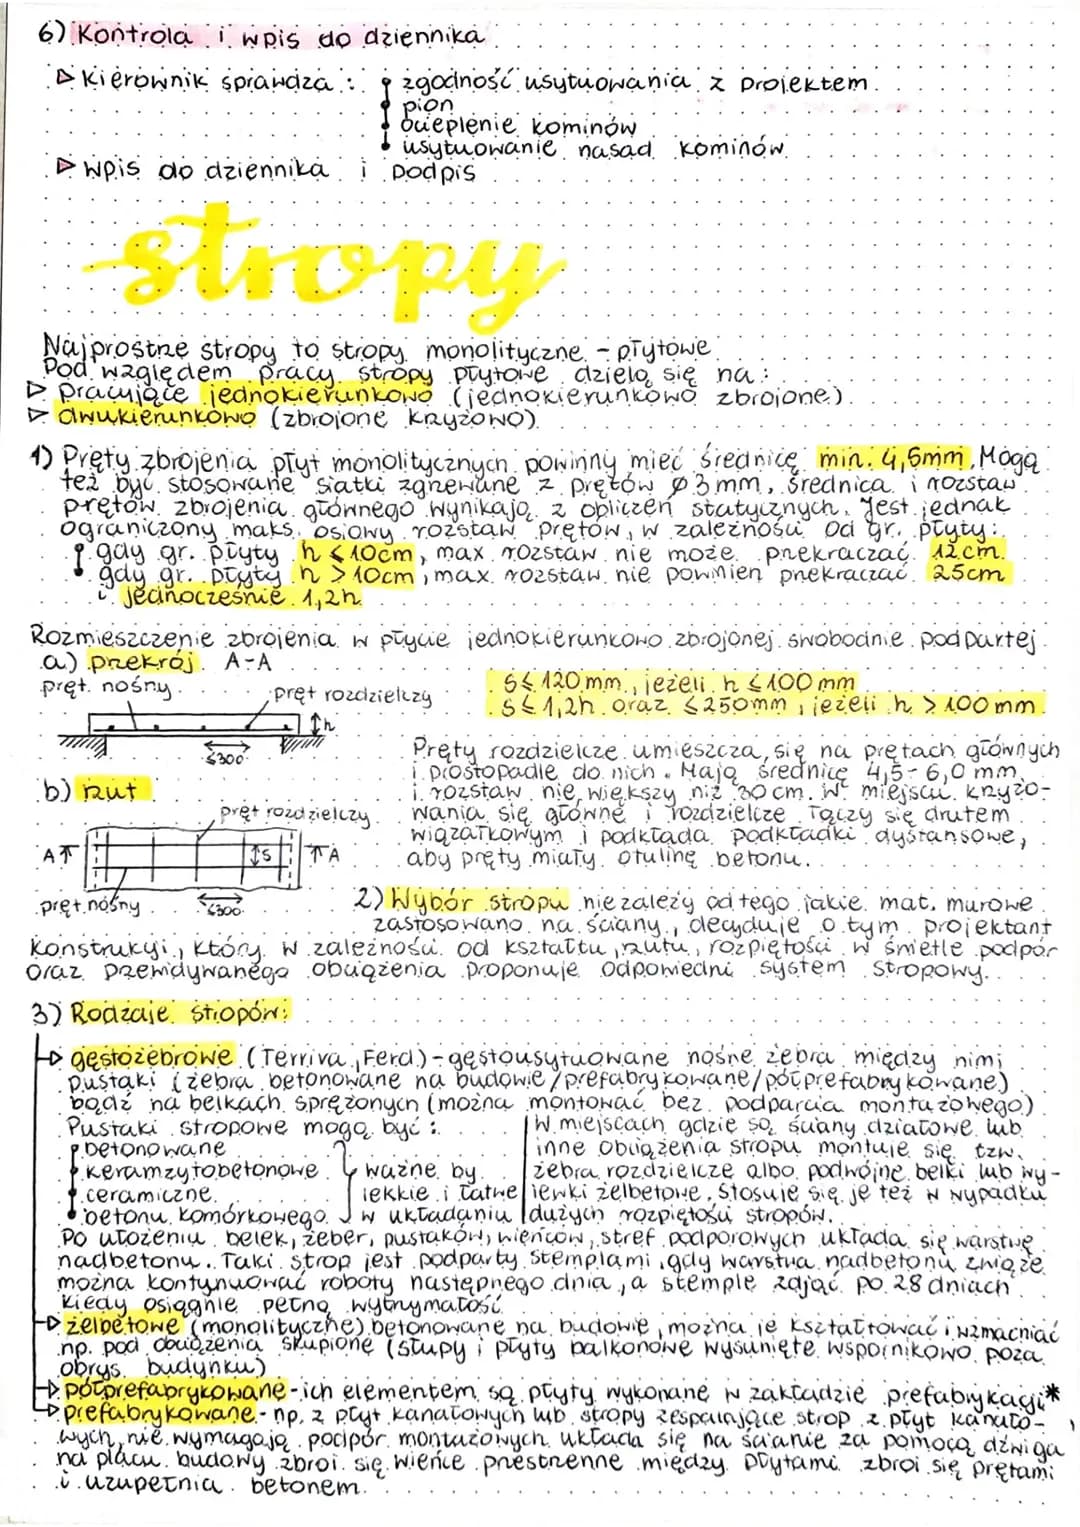 6) Kontrola i wpis do dziennika
▷ Kierownik sprawdza: • zgodność usytuowania z projektem
• pion
• ocieplenie kominów
• usytuowanie nasad kominów
▷ wpis do dziennika i podpis
stropy
Najprostrze stropy to stropy monolityczne - płytowe
Pod względem pracy stropy płytowe dzielą się na:
▷ pracujące jednokierunkowo (jednokierunkowo zbrojone)
▷ dwukierunkowo (zbrojone krzyżowo)
1) Pręty zbrojenia płyt monolitycznych powinny mieć średnicę min. 4,5mm. Mogą
też być stosowane siatki zgrzewane z prętów ø3mm, średnica i rozstaw
prętów zbrojenia głównego wynikają z obliczeń statycznych. Jest jednak
ograniczony maks. osiowy rozstaw prętów, w zależności od gr. płyty:
• gdy gr. płyty h ≤ 10cm, max rozstaw nie może przekraczać 12cm.
• gdy gr. płyty h > 10cm, max. rozstaw nie powinien przekraczać 25cm
i jednocześnie 1,2h
Rozmieszczenie zbrojenia w płycie jednokierunkowo zbrojonej swobodnie podpartej
a) przekrój A-A
pręt nośny
pręt rozdzielczy
h
≤300
s≤ 120mm, jeżeli h ≤100mm
s≤ 1,2h oraz ≤250mm, jeżeli h > 100mm
Pręty rozdzielcze umieszcza się na prętach głównych
i prostopadle do nich. Mają średnicę 4,5-6,0mm
i rozstaw nie większy niż 30cm. W miejscu krzyżo-
wania się główne i rozdzielcze łączy się drutem
wiązałkowym i podkłada podkładki dystansowe,
aby pręty miały otulinę betonu.
b) rzut
pręt rozdzielczy
A↑ ↕s ↑A
pręt nośny
≤300
2) Wybór stropu nie zależy od tego jakie mat. murowe
zastosowano na ściany, decyduje o tym projektant
konstrukcji, który w zależności od kształtu, rzutu, rozpiętości w świetle podpór
oraz przewidywanego obciążenia proponuje odpowiedni system stropowy.
3) Rodzaje stropów:
▷ gęstożebrowe (Terriva, Ferd) - gęstousytuowane nośne żebra między nimi
pustaki (żebra betonowane na budowie/prefabrykowane/półprefabrykowane)
bądź na belkach sprężonych (można montować bez podparcia montażowego)
Pustaki stropowe mogą być:
• betonowane
• keramzytobetonowe
• ceramiczne
• betonu komórkowego
ważne by
lekkie i łatwe
w układaniu
W miejscach gdzie są ściany działowe lub
inne obciążenia stropu montuje się tzw.
żebra rozdzielcze albo podwójne belki lub wy-
lewki żelbetowe. Stosuje się je też w wypadku
dużych rozpiętości stropów.
Po ułożeniu belek, żeber, pustaków, wieńców, stref podporowych układa się warstwę
nadbetonu. Taki strop jest podparty stemplami, gdy warstwa nadbetonu zwiąże
można kontynuować roboty następnego dnia, a stemple zdjąć po 28 dniach
kiedy osiągnie pełną wytrzymałość
▷ żelbetowe (monolityczne) betonowane na budowie, można je kształtować i wzmacniać
np. pod obciążenia skupione (słupy i płyty balkonowe wysunięte wspornikowo poza
obrys budynku)
▷ półprefabrykowane - ich elementem są płyty wykonane w zakładzie prefabrykacji*
▷ prefabrykowane - np. z płyt kanałowych lub stropy zespalające strop z płyt kanało-
wych, nie wymagają podpór montażowych układa się na ścianie za pomocą dźwiga
na placu budowy zbroi się wieńce przestrzenne między płytami zbroi się prętami
i uzupełnia betonem.